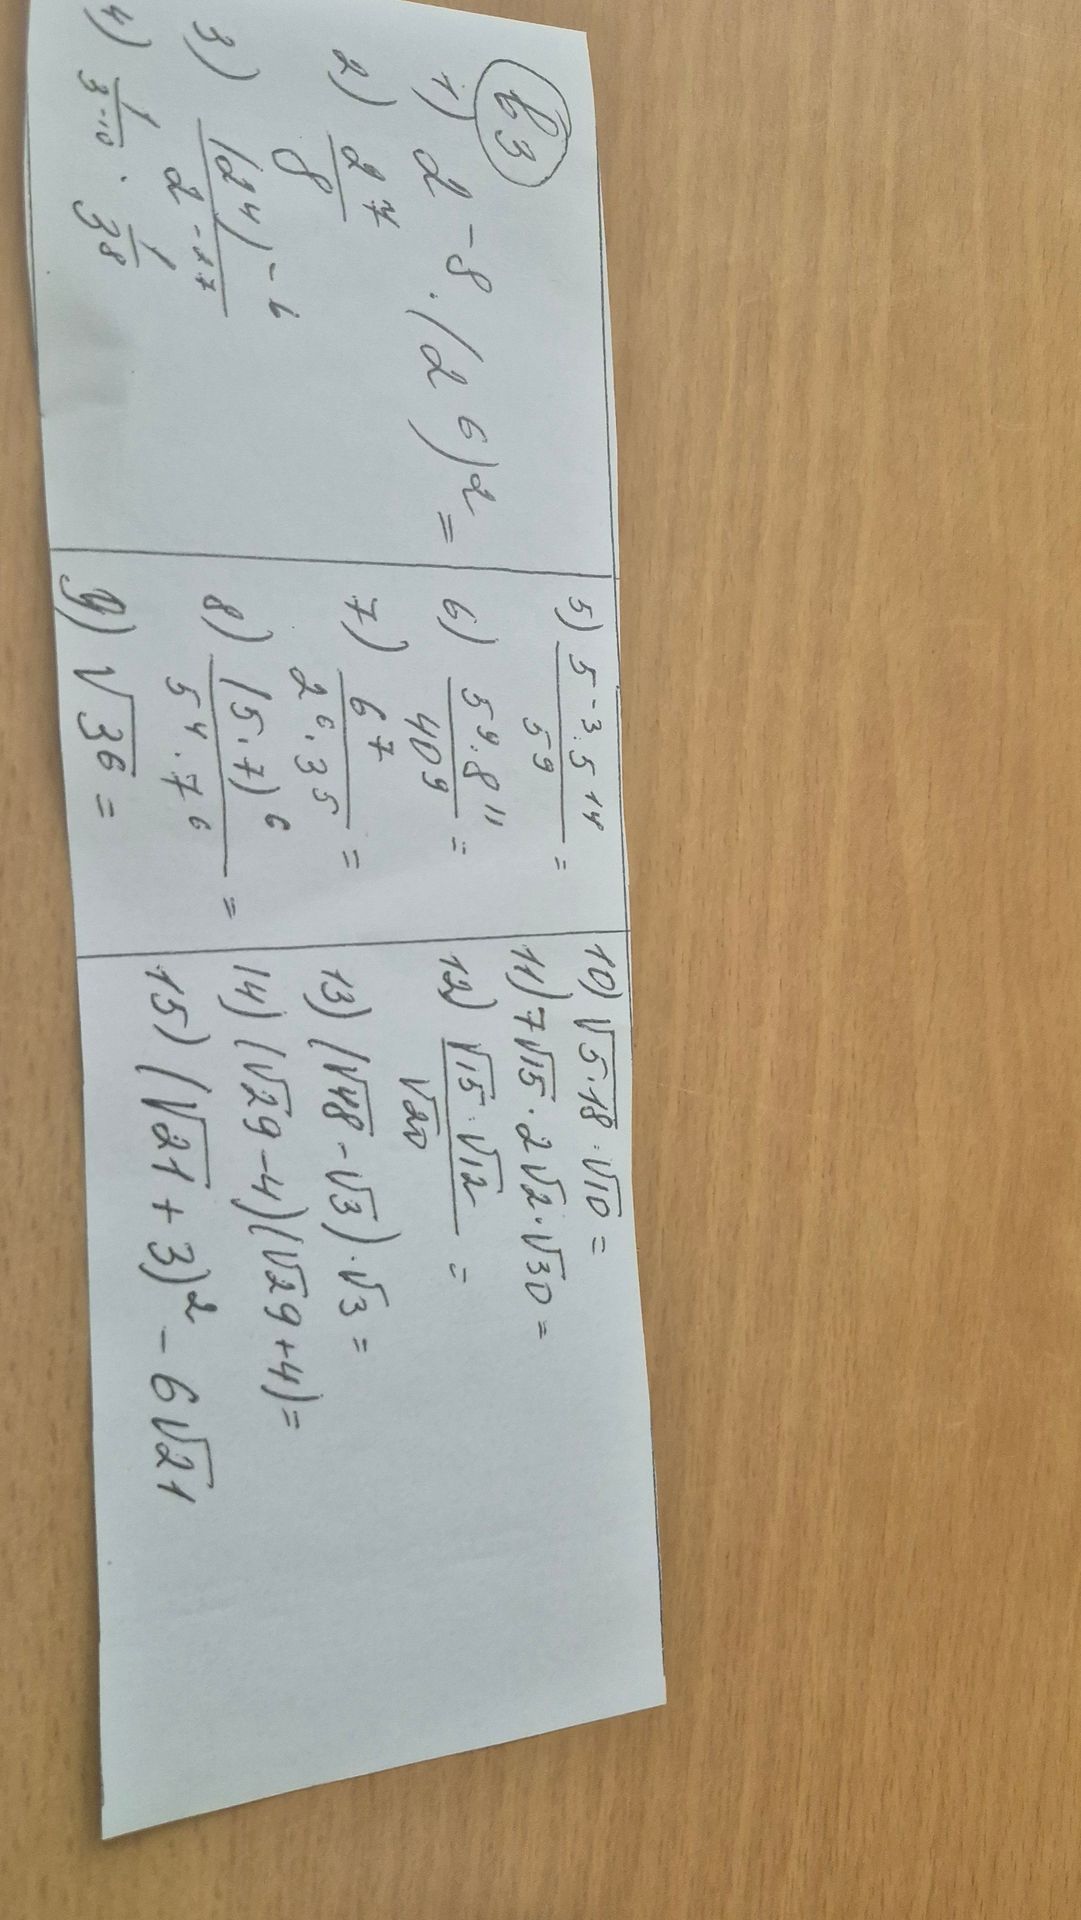 В3
1) 2^-8 · (2^6)^2 =
2) 2^7 / 8
3) (2^4)^-6 / 2^-27
4) 1/3^-10 · 1/3^8
5) 5^-3 · 5^14 / 5^9 =
6) 5^9 · 8^11 / 40^9 =
7) 6^7 / 2^6 · 3^5 =
8) (5 · 7)^6 / 5^4 · 7^6 =
9) √3^6 =
10) √5·18 · √10 =
11) 7√15 · 2√2 · √30 =
12) √15 · √12 / √20 =
13) (√48 - √3) · √3 =
14) (√29 - 4)(√29 + 4) =
15) (√21 + 3)^2 - 6√21